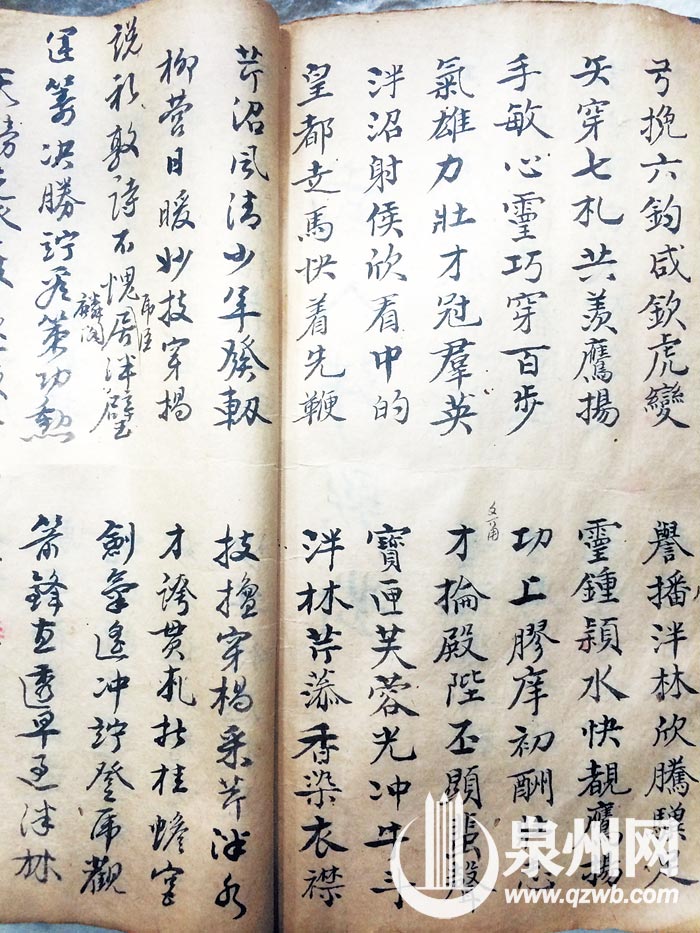 弓挽六鈞咸欽虎變
矢穿七札共羨鷹揚
手敏心靈巧穿百步
氣雄力壯才冠羣英
泮沼射侯欣看中的
皇都走馬快着先鞭
芹沼風清少年發軔
柳營日暖妙技穿楊
說禮敦詩不愧居泮壁
虎臣
麟閣
運籌决勝竚看策功勲
譽播泮林欣騰驥足
靈鍾潁水快覩鷹揚
功上膠庠初酬
文甫
才掄殿陛丕顯蜚聲
寶匣芙蓉光冲牛斗
泮林芹藻香染衣襟
技擅穿楊采芹泮水
才誇貫札折桂蟾宮
劍氣遙冲竚登虎觀
箭鋒直透早遊泮林
泉州网
www.qzwb.com